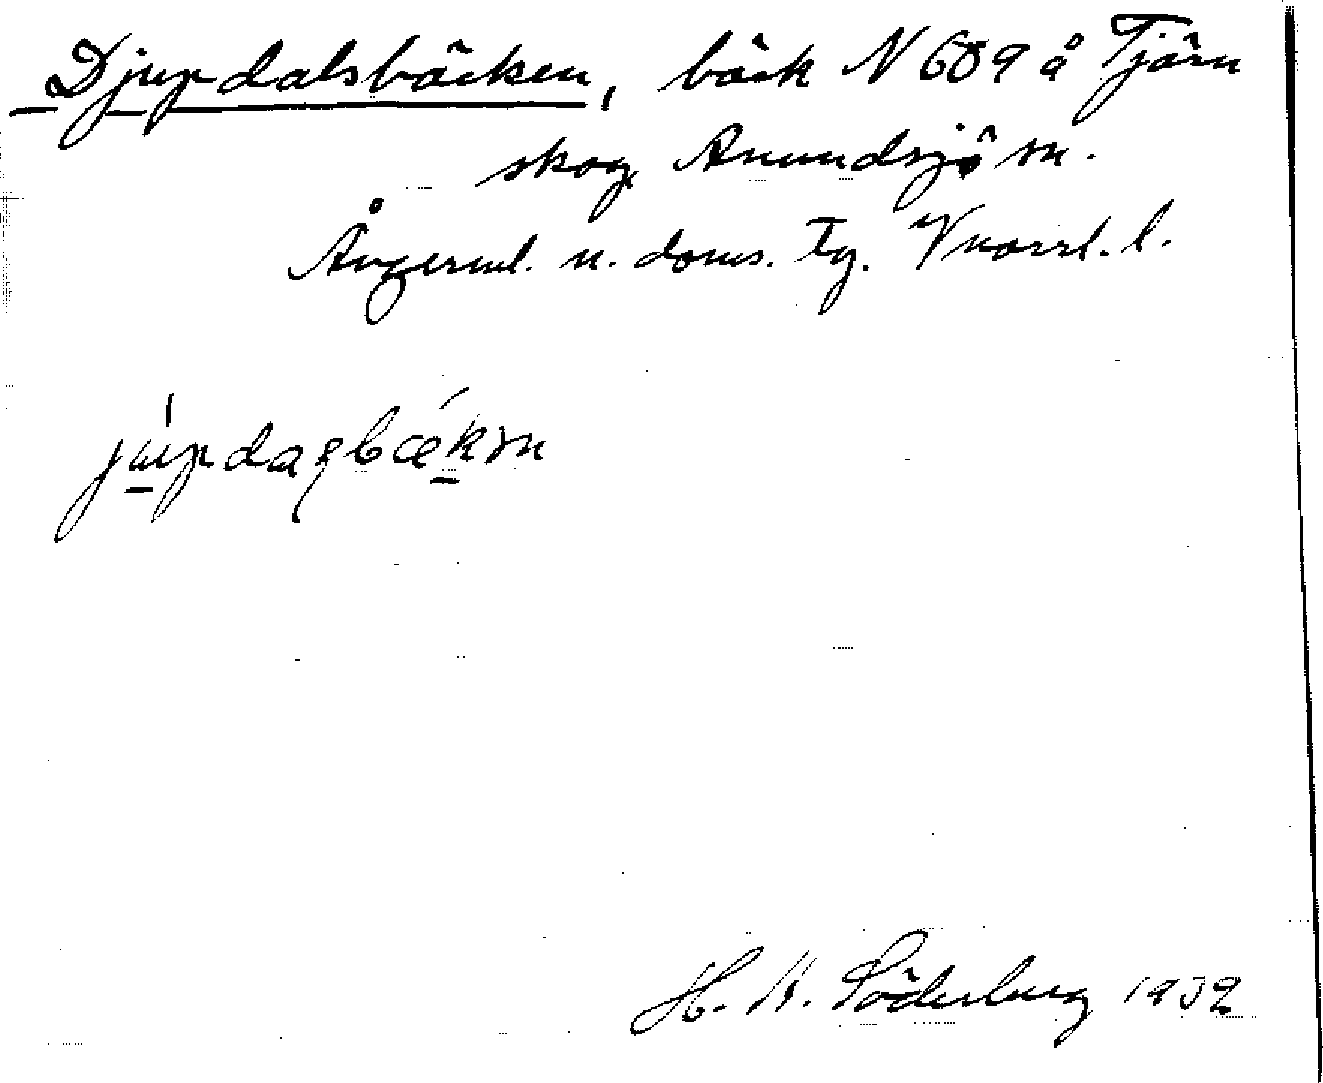 Djupdalsbäcken, bäck N 609 å Tjärn
skog Anundsjö sn.
Ångerml. n. doms. Tg. Vnorrl. l.
júpdaʂbǽkŋ
H. A. Söderberg 1932